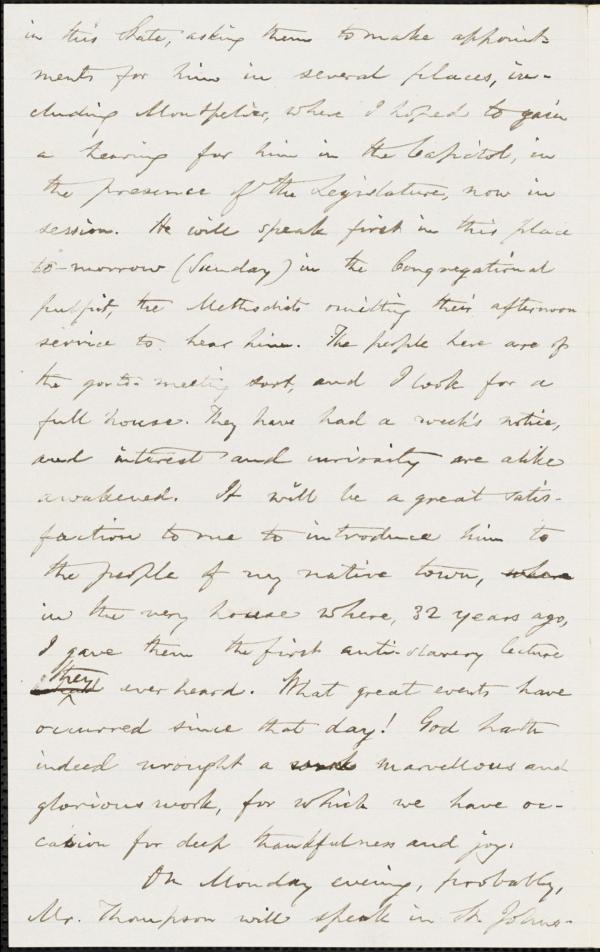 in this State, asking them to make appoint-
ments for him in several places, in-
cluding Montpelier, where I hoped to gain
a hearing for him in the Capitol, in
the presence of the Legislature, now in
session. He will speak first in this place
to-morrow (Sunday) in the Congregational
pulpit, the Methodists omitting their afternoon
service to hear him. The people here are of
the go-to-meeting sort, and I look for a
full house. They have had a week's notice,
and interest and curiosity are alike
awakened. It will be a great satis-
faction to me to introduce him to
the people of my native town, where
in the very house where, 32 years ago,
I gave them the first anti-slavery lecture
they ever heard. What great events have
occurred since that day! God hath
indeed wrought a work marvellous and
glorious work, for which we have oc-
casion for deep thankfulness and joy.
On Monday evening, probably,
Mr. Thompson will speak in St. Johns-